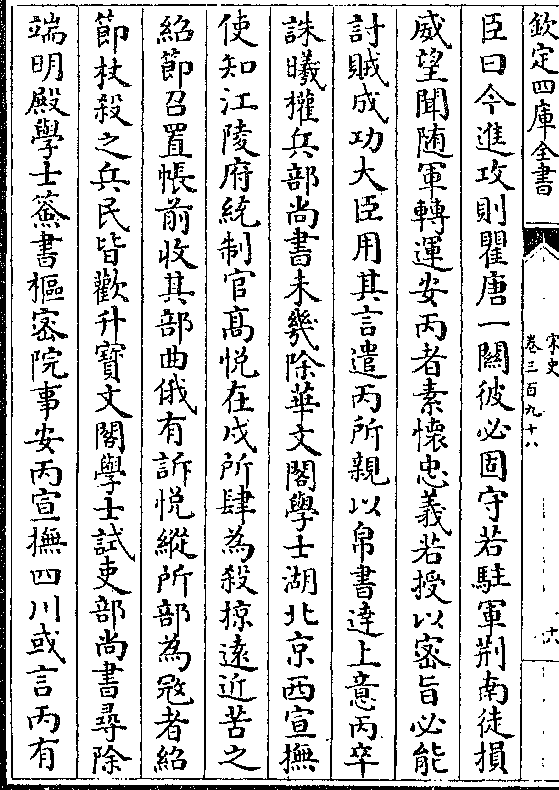 欽定四庫全書
宋史
卷三百九十八
六
臣曰今進攻則瞿唐一關彼必固守若駐軍荆南徒損
威望聞随軍轉運安丙者素懷忠義若授以宻旨必能
討賊成功大臣用其言遣丙所親以帛書逹上意丙卒
誅曦權兵部尚書未㡬除華文閣學士湖北京西宣撫
使知江陵府統制官髙悦在戍所肆為殺掠遠近苦之
紹節召置帳前收其部曲俄有訴悦縱所部為冦者紹
節杖殺之兵民皆歡升寶文閣學士試吏部尚書尋除
端明殿學士簽書樞宻院事安丙宣撫四川或言丙有